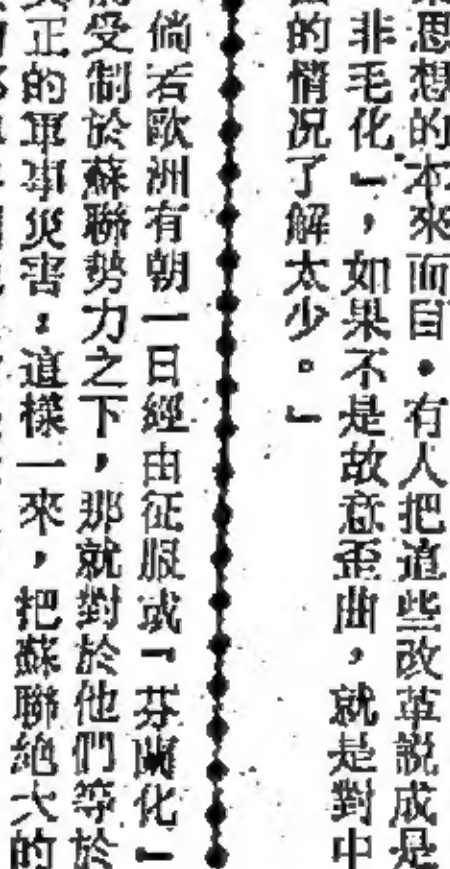 思想的本來面目。有人把這些改革説成是
非毛化」，如果不是故意歪曲，就是對中
的情況了解太少。」
倘若歐洲有朝一日經由征服或「芬蘭化」
受制於蘇聯勢力之下，那就對於他們等於
正的軍事災害，這樣一來，把蘇聯絶大的